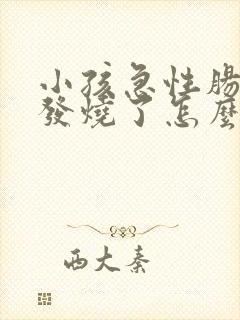 小孩急性腸
發燒了怎麼
西大秦